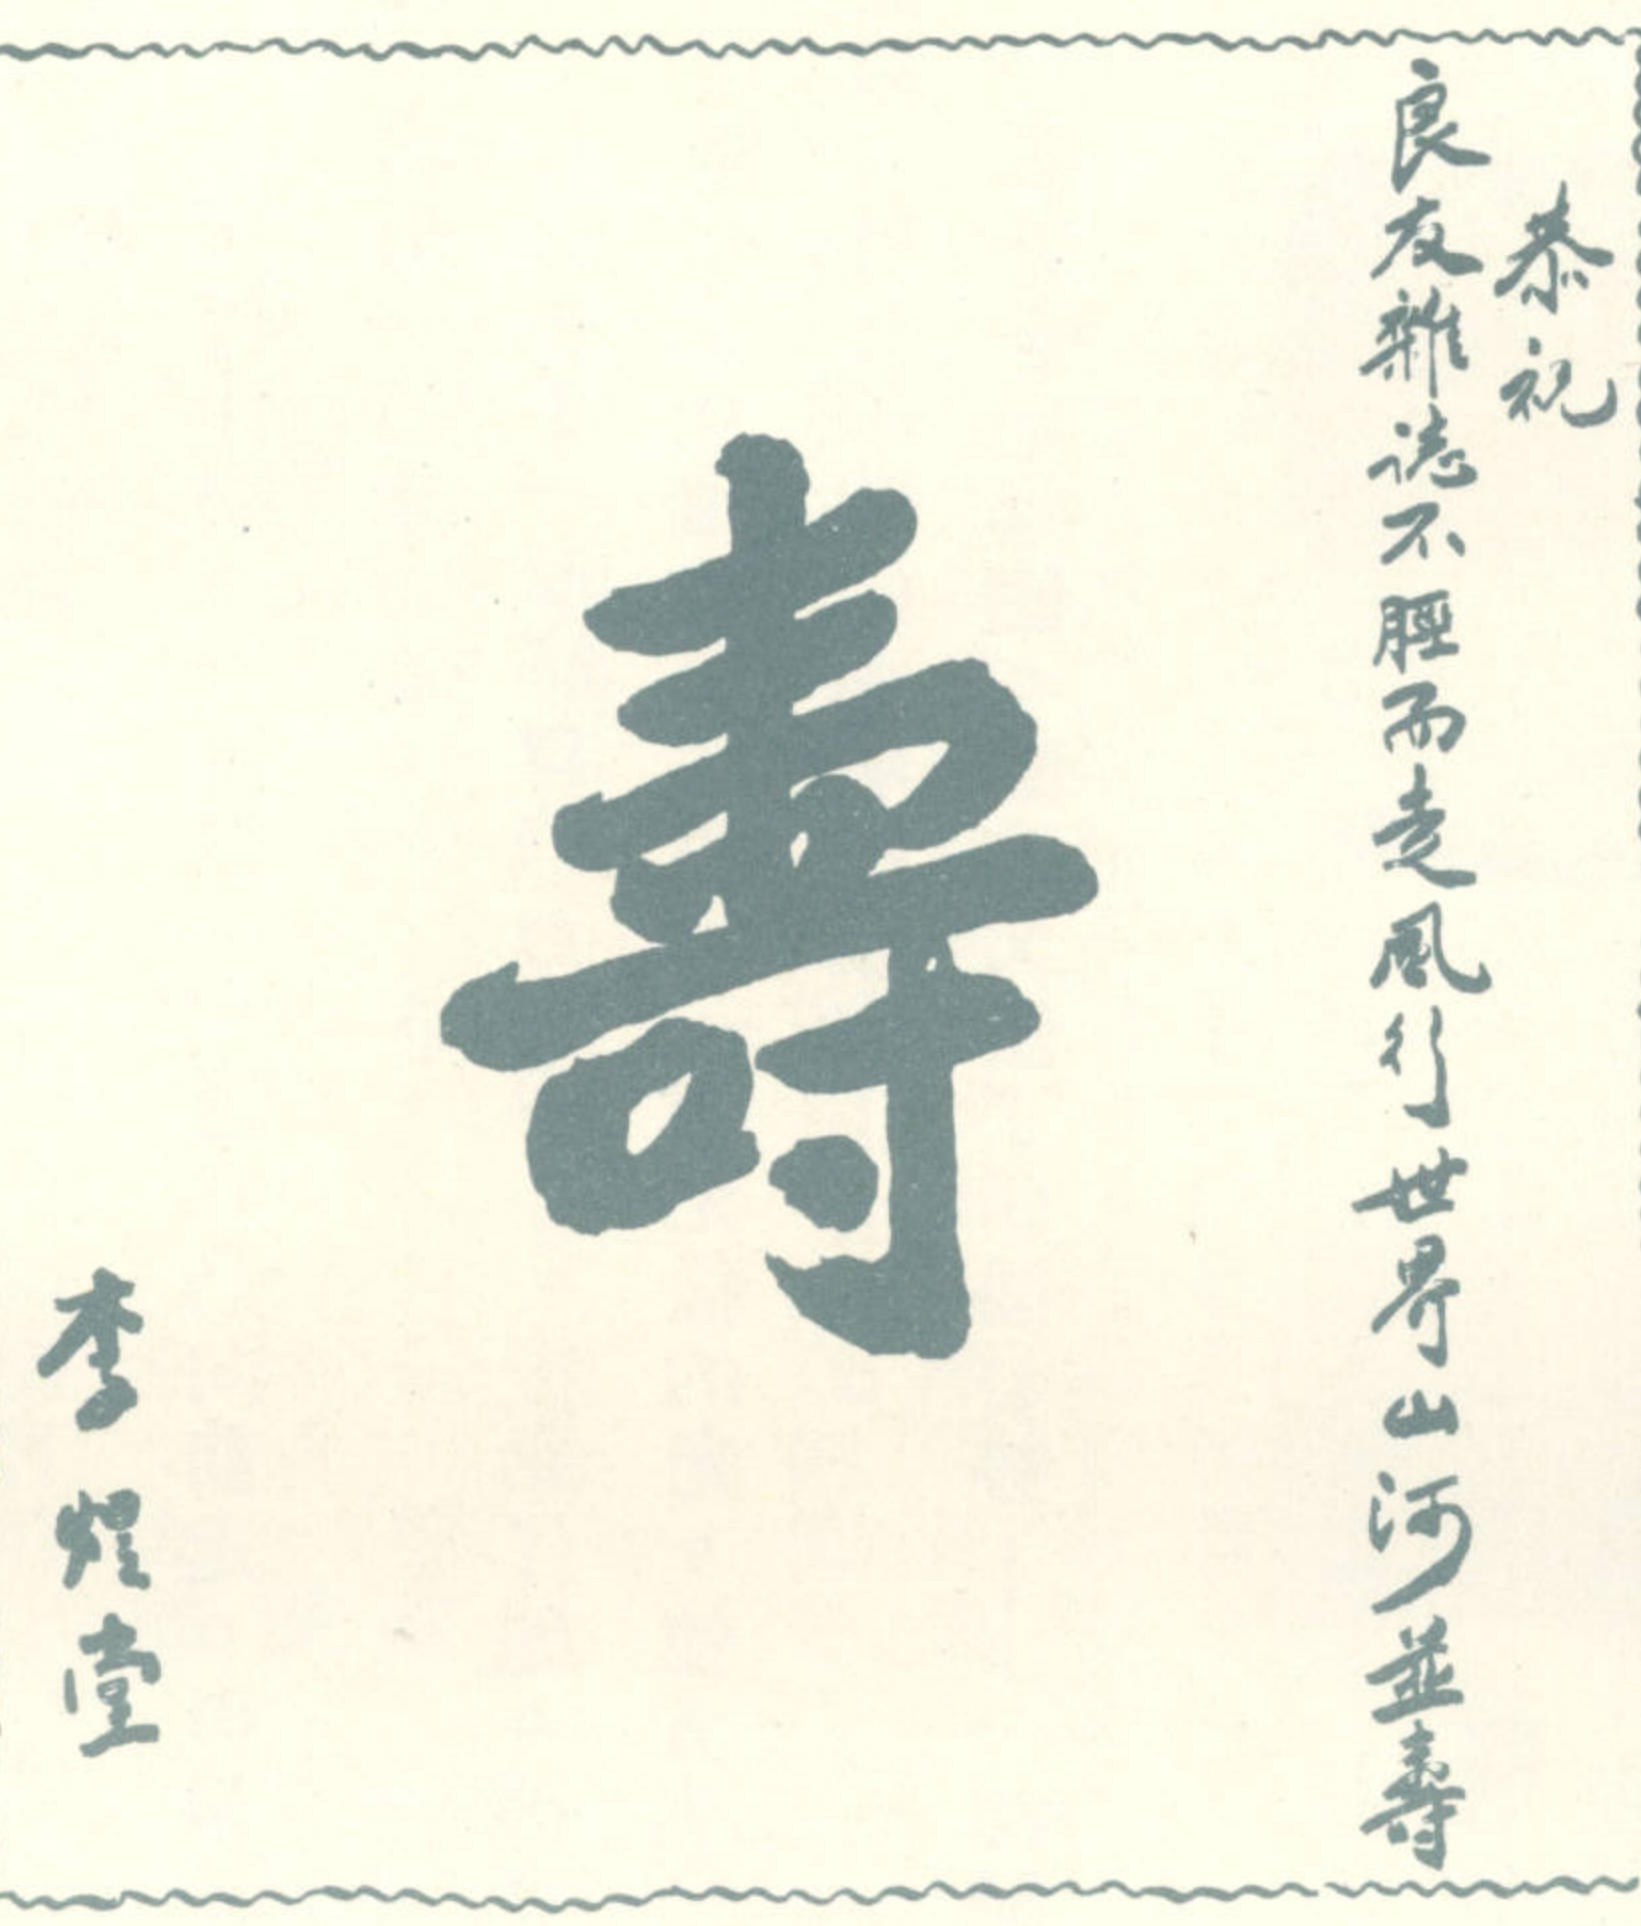 恭祝
良友雜誌不脛而走風行世界山河並壽
壽
李煜堂